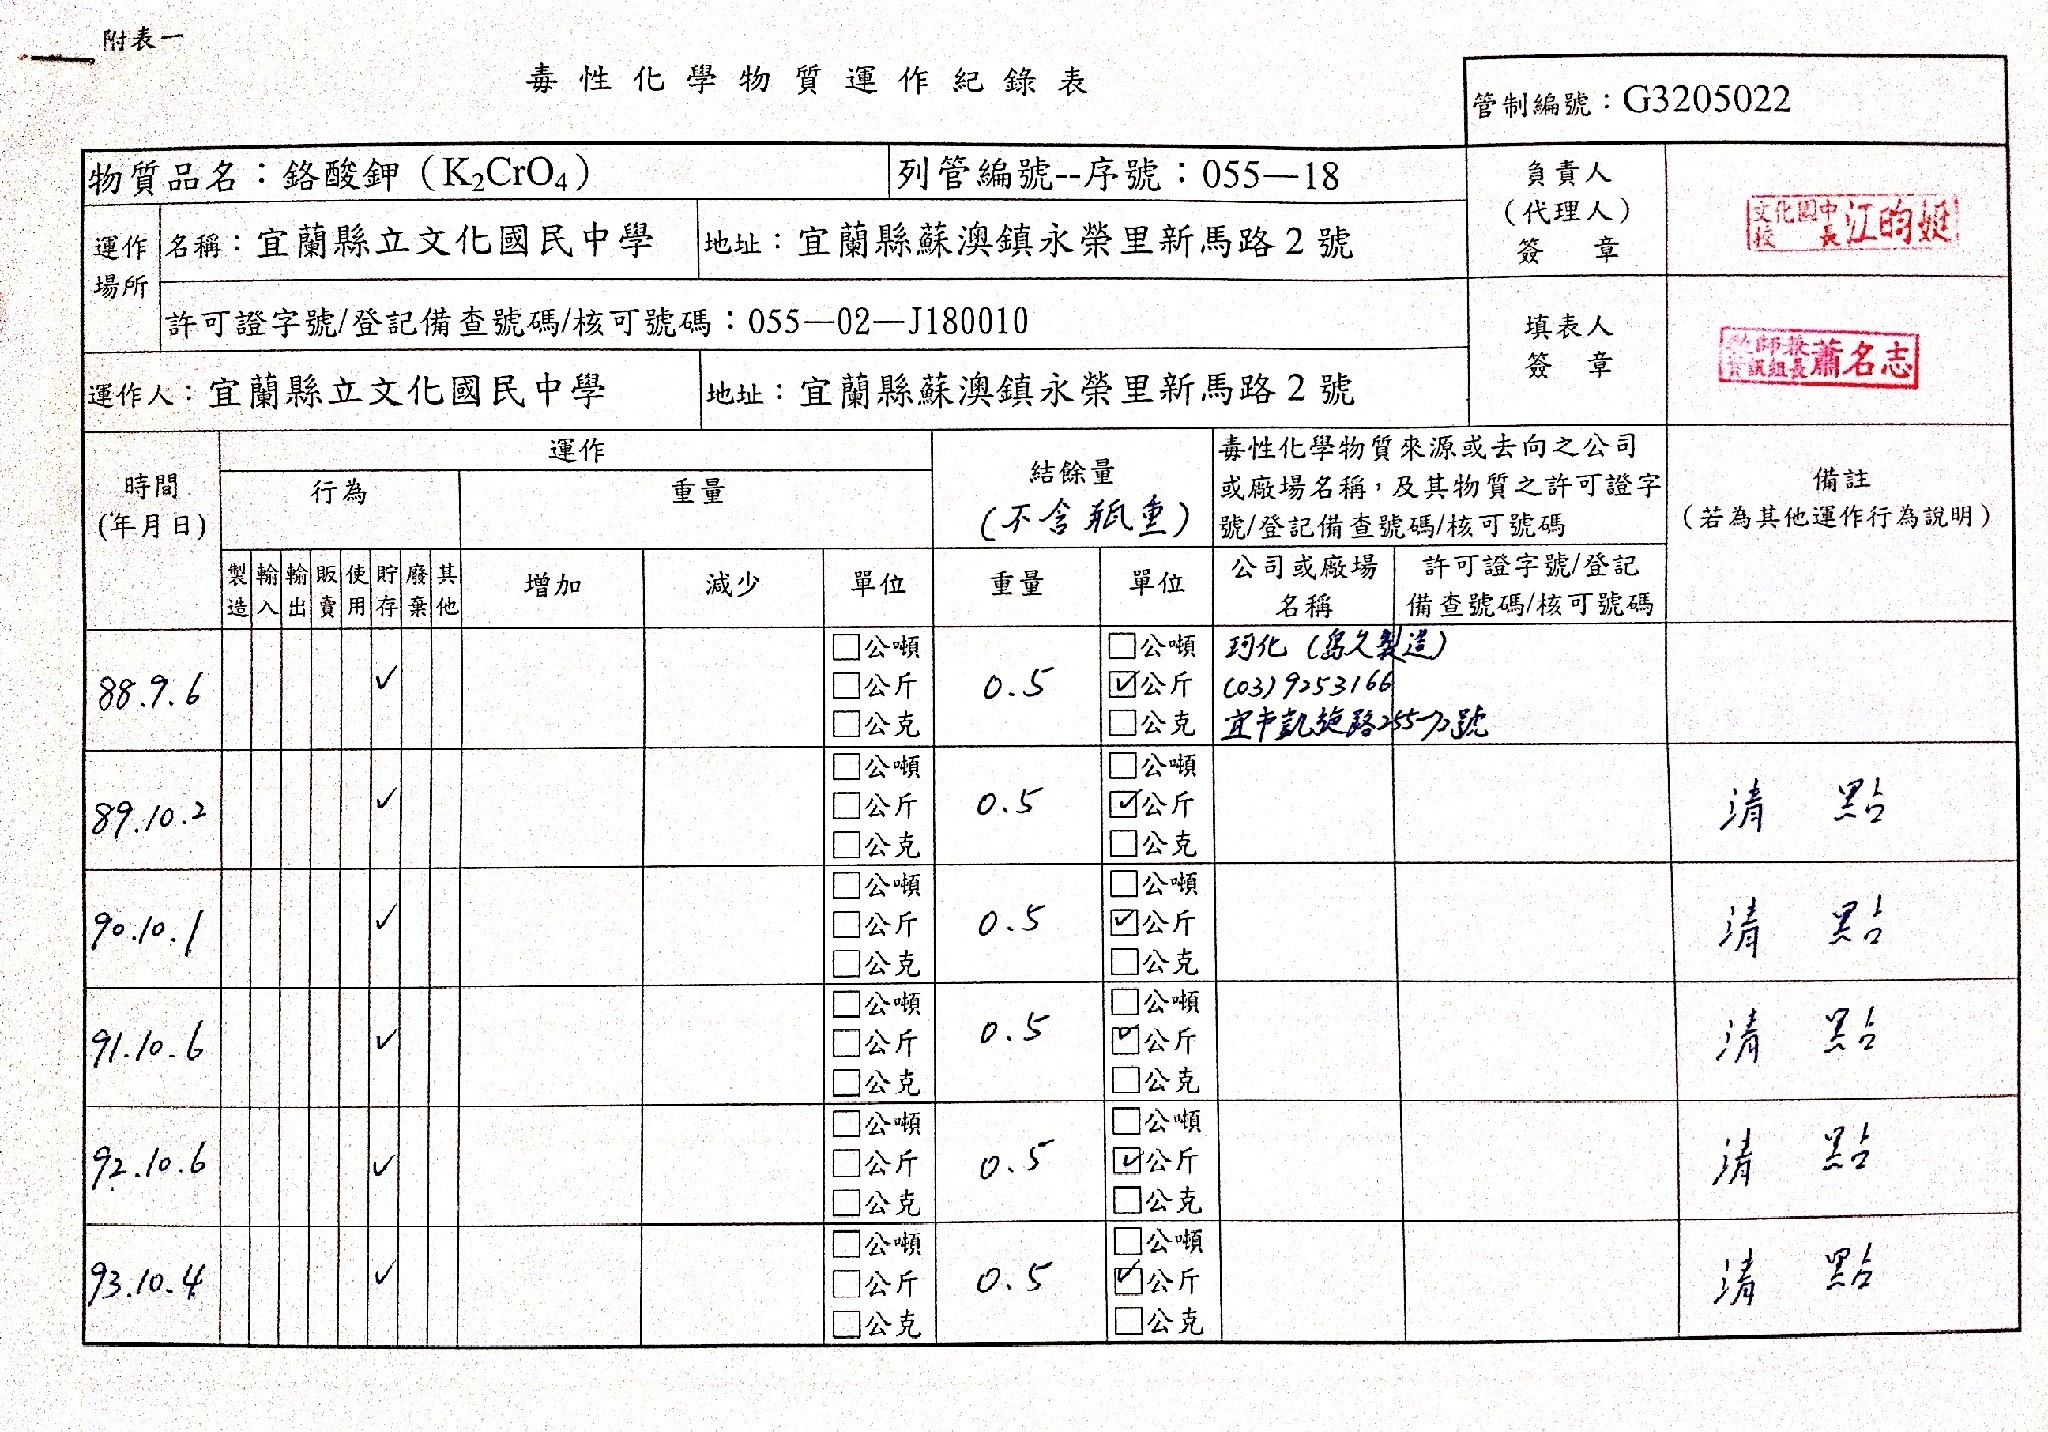 附表一
毒性化學物質運作紀錄表
管制編號：G3205022
物質品名：鉻酸鉀（K₂CrO₄）
列管編號--序號：055—18
負責人
（代理人）
簽 章
文化國中
校長
江昀娗
運作
場所
名稱：宜蘭縣立文化國民中學
地址：宜蘭縣蘇澳鎮永榮里新馬路2號
許可證字號/登記備查號碼/核可號碼：055—02—J180010
填表人
簽 章
組長
蕭名志
運作人：宜蘭縣立文化國民中學
地址：宜蘭縣蘇澳鎮永榮里新馬路2號
時間
(年月日)
運作
行為
重量
結餘量
(不含瓶重)
毒性化學物質來源或去向之公司
或廠場名稱，及其物質之許可證字
號/登記備查號碼/核可號碼
備註
（若為其他運作行為說明）
製造
輸入
輸出
販賣
使用
貯存
廢棄
其他
增加
減少
單位
重量
單位
公司或廠場
名稱
許可證字號/登記
備查號碼/核可號碼
88.9.6
✓
□公噸
□公斤
□公克
0.5
□公噸
☑公斤
□公克
(島久製造)
(03)9253166
宜市凱旋路255號
89.10.2
✓
□公噸
□公斤
□公克
0.5
□公噸
☑公斤
□公克
清 點
90.10.1
✓
□公噸
□公斤
□公克
0.5
□公噸
☑公斤
□公克
清 點
91.10.6
✓
□公噸
□公斤
□公克
0.5
□公噸
☑公斤
□公克
清 點
92.10.6
✓
□公噸
□公斤
□公克
0.5
□公噸
☑公斤
□公克
清 點
93.10.4
✓
□公噸
□公斤
□公克
0.5
□公噸
☑公斤
□公克
清 點